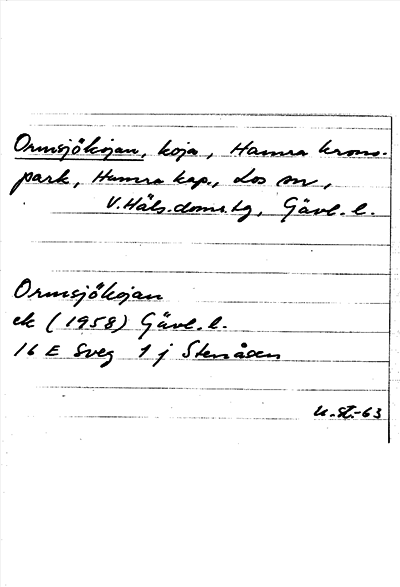 Ormsjökojan, koja, Hamra krono-
park, Hamra kap., Los sn,
V. Häls. doms.tg, Gävl. l.
Ormsjökojan
ek (1958) Gävl. l.
16 E Sveg 1 j Stenåsen
u.st.-63